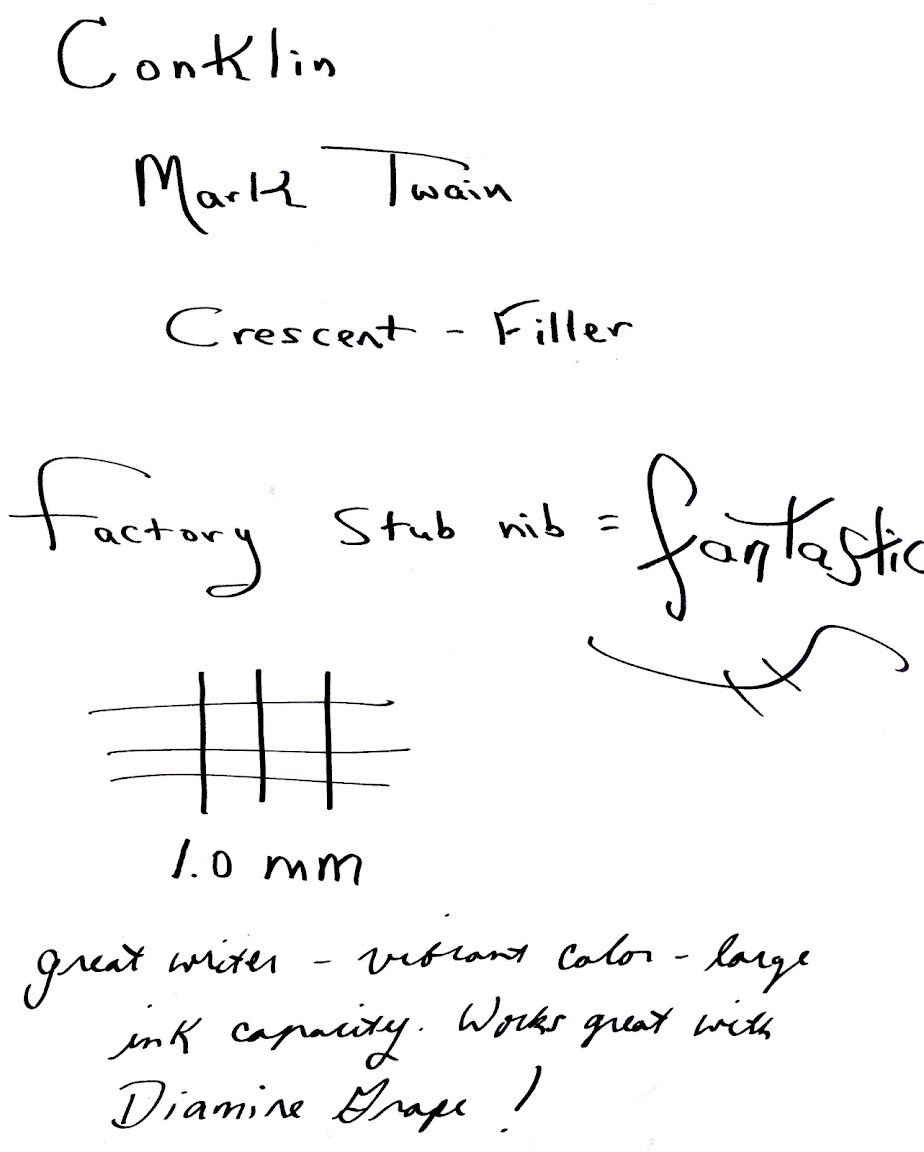 Conklin
Mark Twain
Crescent - Filler
Factory Stub nib = fantastic
1.0 mm
great writer - vibrant color - large
ink capacity. Works great with
Diamine Grape !